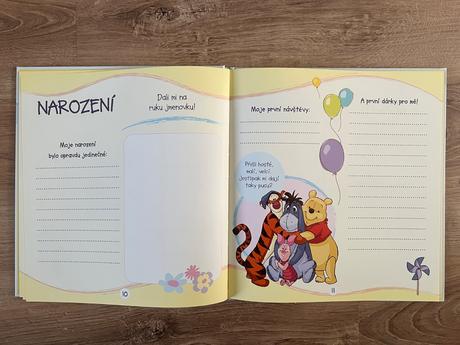 NAROZENÍ
Dali mi na
ruku jmenovku!
Moje narození
bylo opravdu jedinečné:
10
Moje první návštěvy:
A první dárky pro mě!
Přišli hosté,
malí, velcí.
Jestlipak mi dají
taky pusu?
11